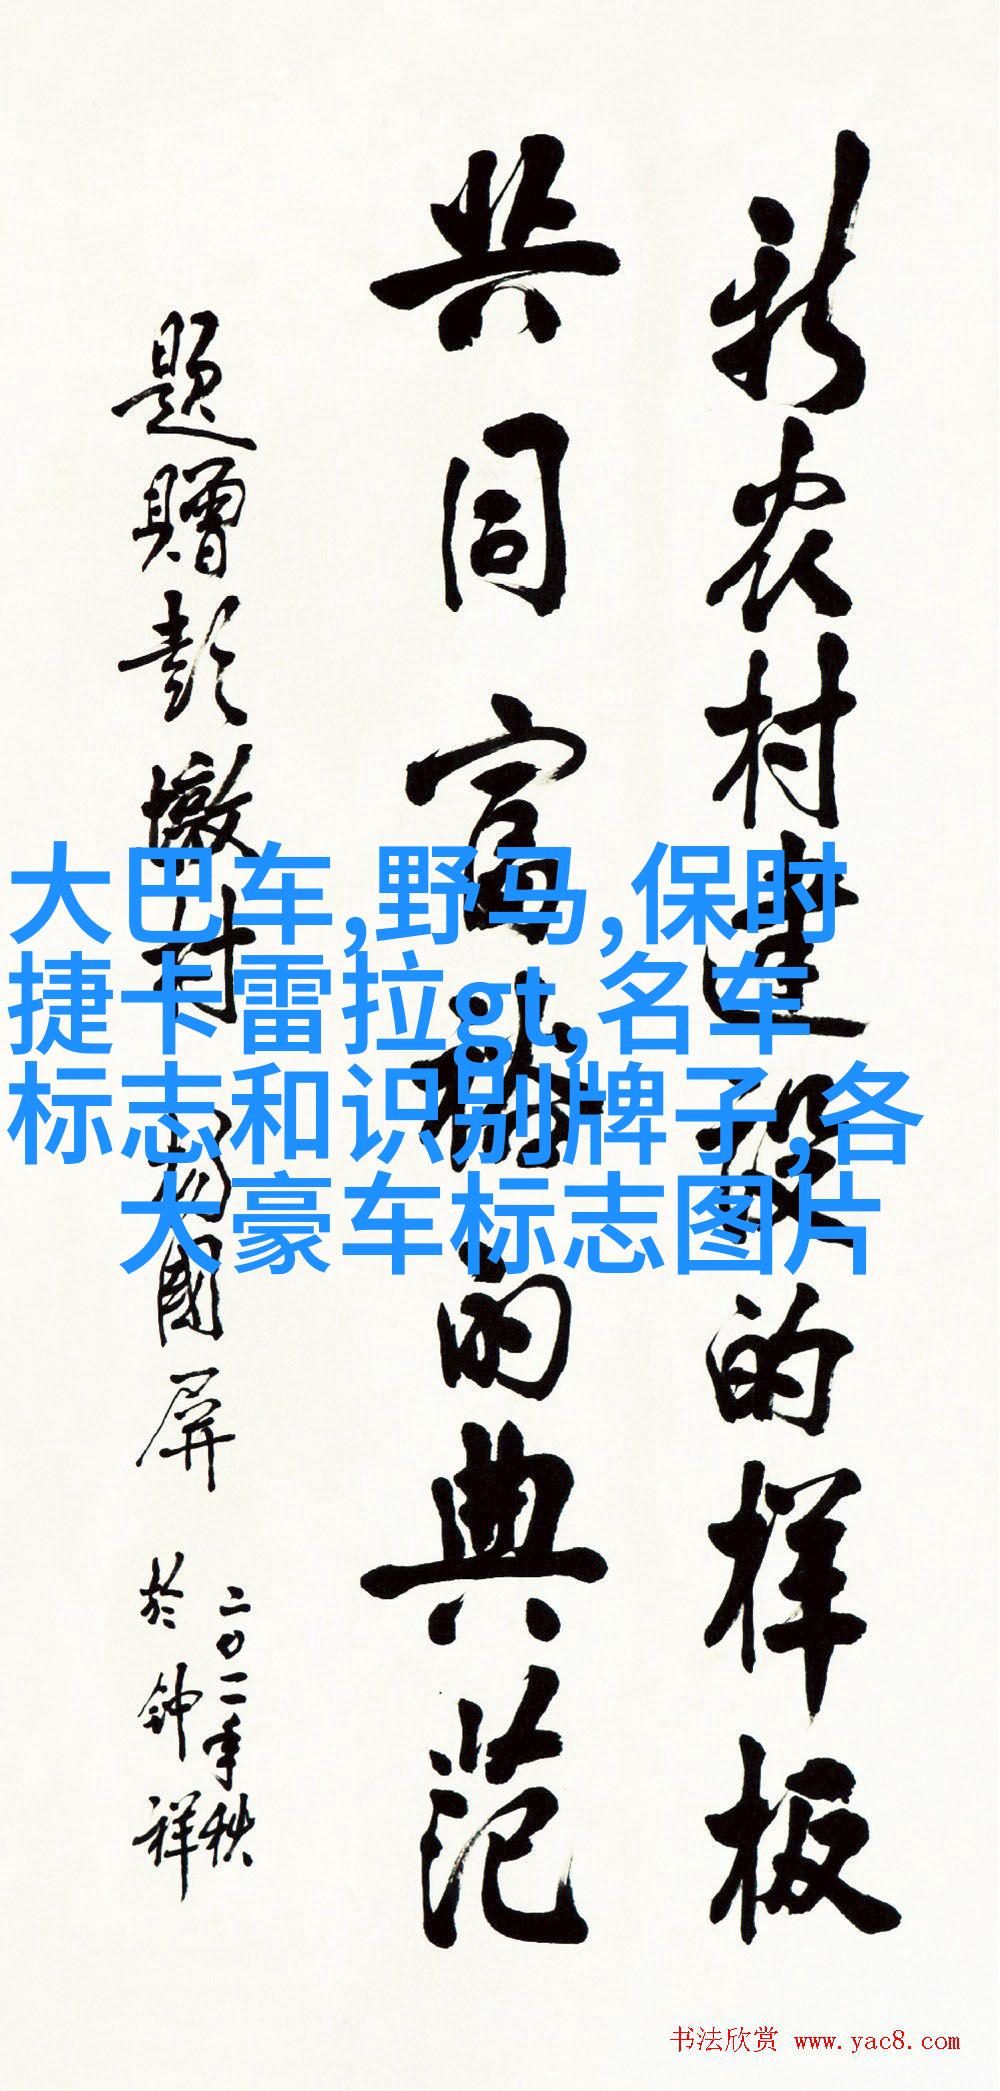 新农村建设的样板
共同富裕的典范
题赠彭墩村
國屏
二〇一一年秋
於钟祥
大巴车,野马,保时
捷卡雷拉gt,名车
标志和识别牌子,各
大豪车标志图片
书法欣赏 www.yac8.com